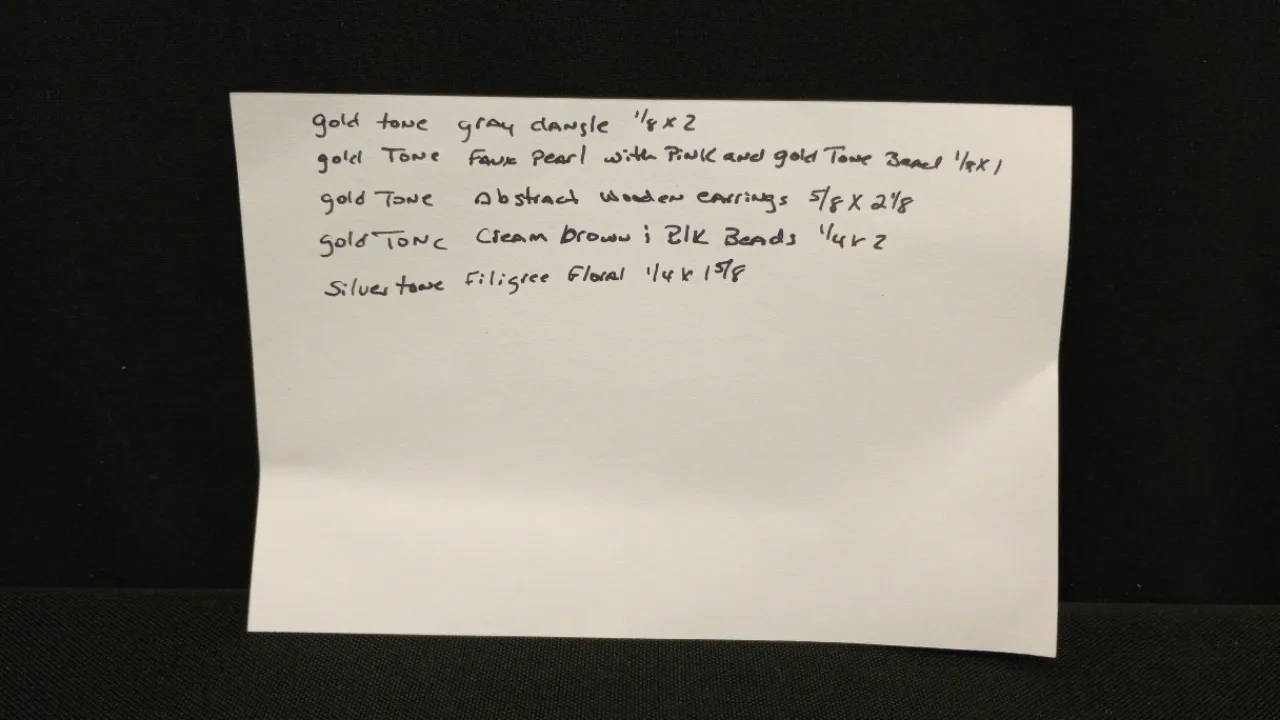 gold tone gray dangle 1/8 x 2
gold Tone Faux Pearl with Pink and gold Tone Bead 1/8 x 1
gold Tone Abstract wooden earrings 5/8 X 2 1/8
gold Tone Cream brown & Blk Beads 1/4 x 2
Silvertone Filigree Floral 1/4 x 1 5/8